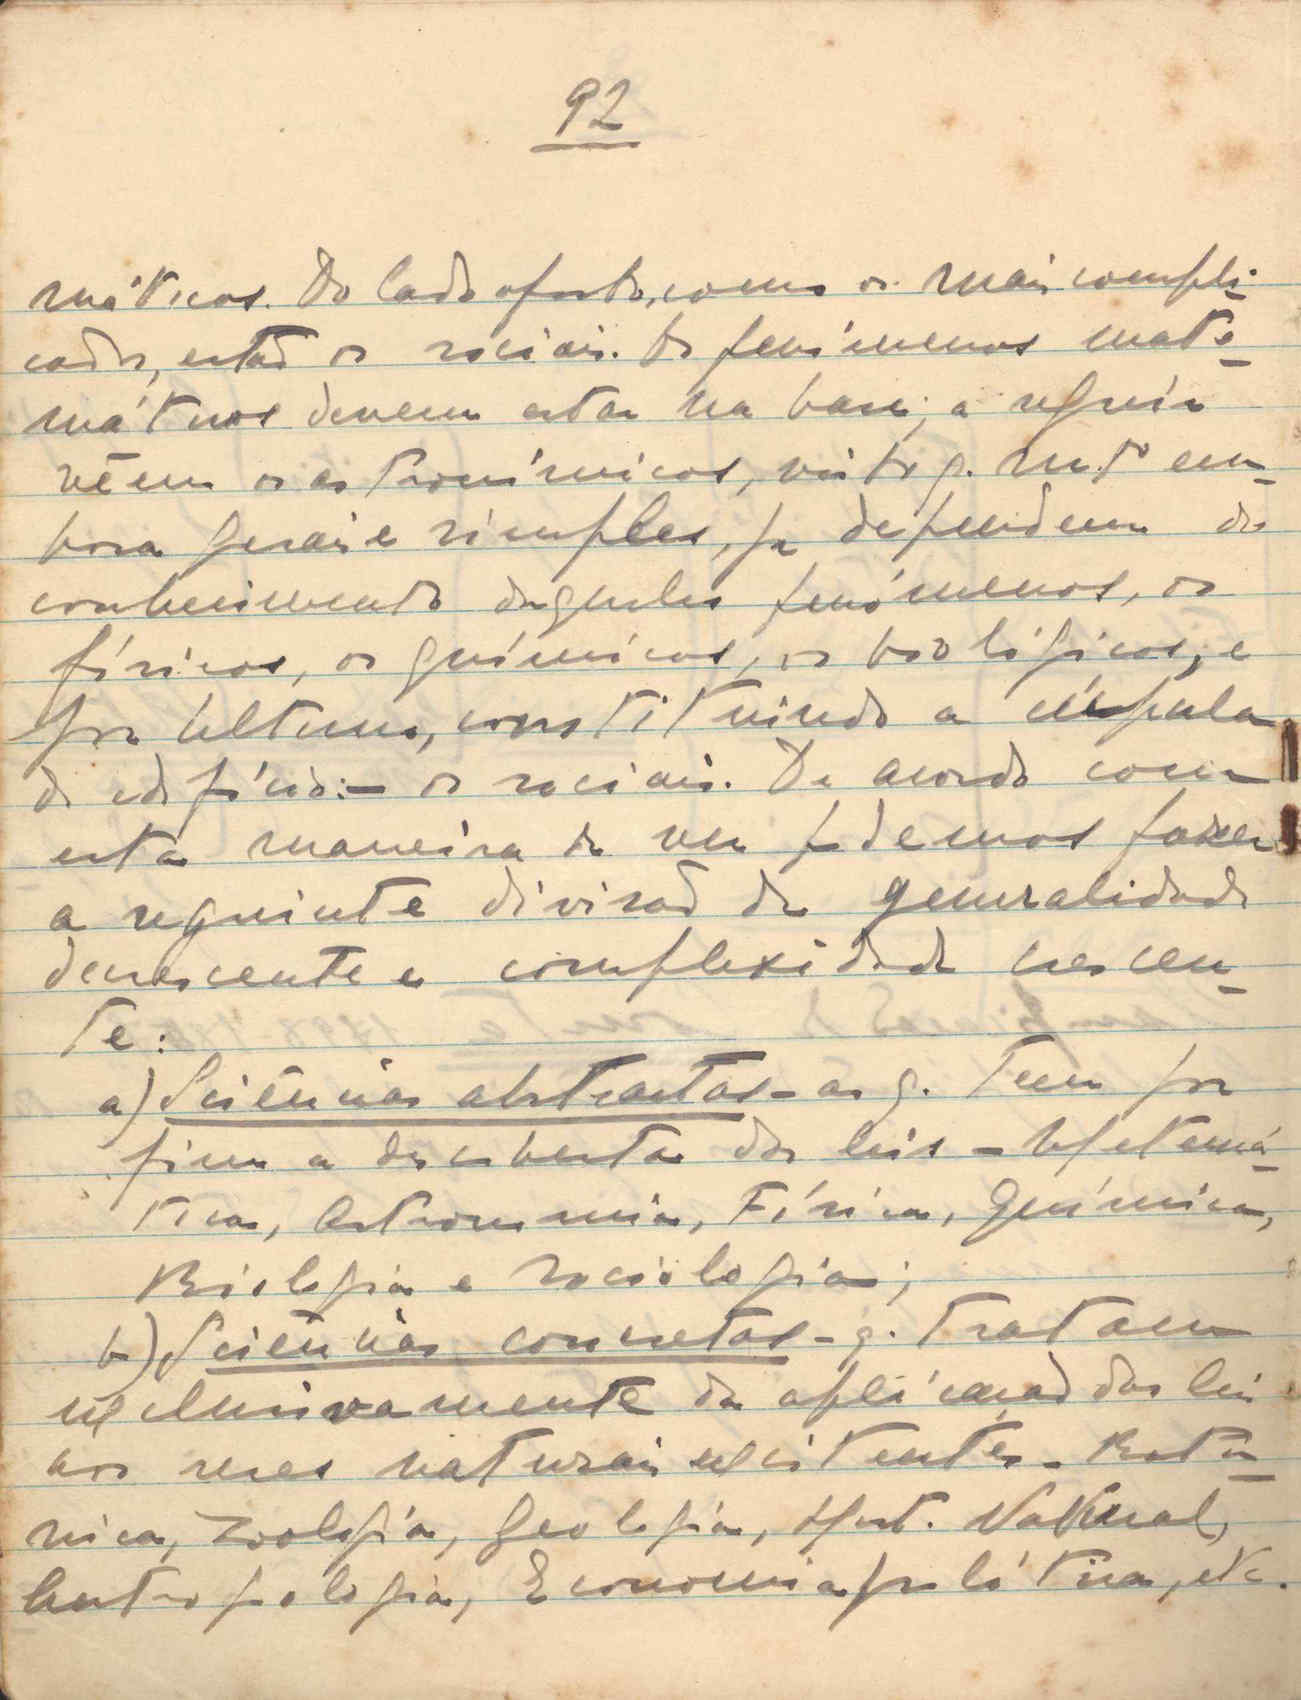 92
máticos. Do lado oposto, como os mais compli-
cados, estão os sociais. Os fenómenos mate-
máticos devem estar na base; a seguir
vêem os astronómicos, visto q. mto em-
bora gerais e simples, já dependem do
conhecimento daqueles fenómenos, os
físicos, os químicos, os biológicos, e
por ultimo, constituindo a cúpula
do edifício:- os sociais. De acordo com
esta maneira de ver podemos fazer
a seguinte divisão de generalidade
decrescente e complexidade crescen-
te:
a) Sciências abstractas - as q. teem por
fim a descoberta das leis - Matemá-
tica, Astronomia, Física, Química,
Biologia e Sociologia;
b) Sciências concretas - q. tratam
exclusivamente da aplicação das leis
aos seres naturais existentes - Botâ-
nica, Zoologia, Geologia, Hist. Natural,
Antropologia, Economia política, etc.